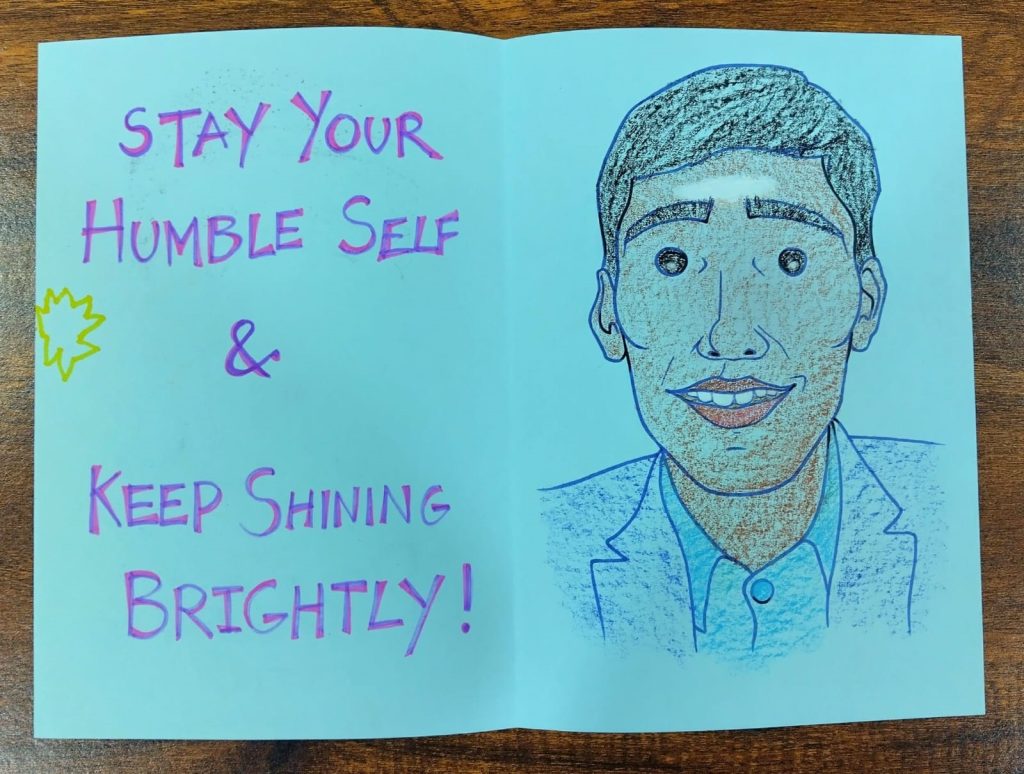 STAY YOUR
HUMBLE SELF
&
KEEP SHINING
BRIGHTLY!